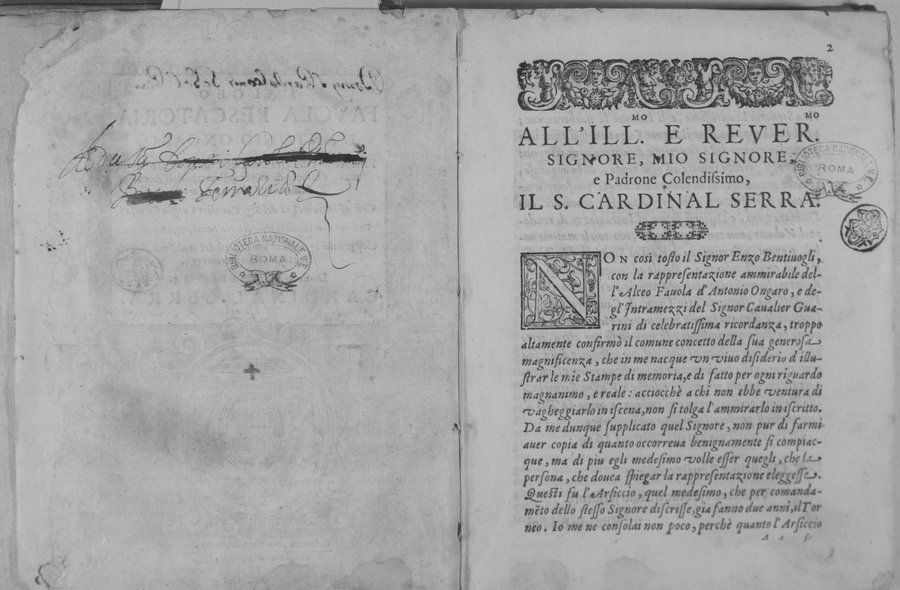 BIBLIOTECA NAZIONALE V.E.
ROMA
2
ALL'ILL.MO E REVER.MO
SIGNORE, MIO SIGNORE,
e Padrone Colendiſsimo,
IL S. CARDINAL SERRA.
BIBLIOTECA NAZIONALE V.E.
ROMA
NON così toſto il Signor Enzo Bentiuogli,
con la rappreſentazione ammirabile del-
l'Alceo Fauola d'Antonio Ongaro, e de-
gl'Intramezzi del Signor Caualier Gua-
rini di celebratiſſima ricordanza, troppo
altamente confirmò il comune concetto della ſua generoſa
magnificenza, che in me nacque vn viuo diſiderio d'illu-
ſtrar le mie Stampe di memoria, e di fatto per ogni riguardo
magnanimo, e reale: acciocchè a chi non ebbe ventura di
vagheggiarlo in iſcena, non ſi tolga l'ammirarlo in iſcritto.
Da me dunque ſupplicato quel Signore, non pur di farmi
auer copia di quanto occorreua benignamente ſi compiac-
que, ma di piu egli medeſimo volle eſſer quegli, che la
perſona, che douea ſpiegar la rappreſentazione eleggeſſe.
Queſti fu l'Arſiccio, quel medeſimo, che per comanda-
mēto dello ſteſſo Signore diſcriſſe, gia fanno due anni, il Tor
neo. Io me ne conſolai non poco, perchè quanto l'Arſiccio
A 2